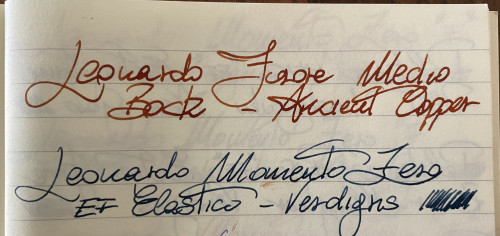 Leonardo Furore Medio
Bock - Ancient Copper
Leonardo Momento Zero
EF Elastico - Verdigris